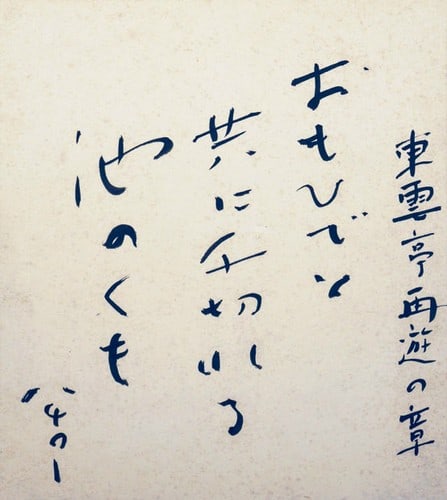 東雲亭再遊の章
おもひでと
共に千切れる
池のくも